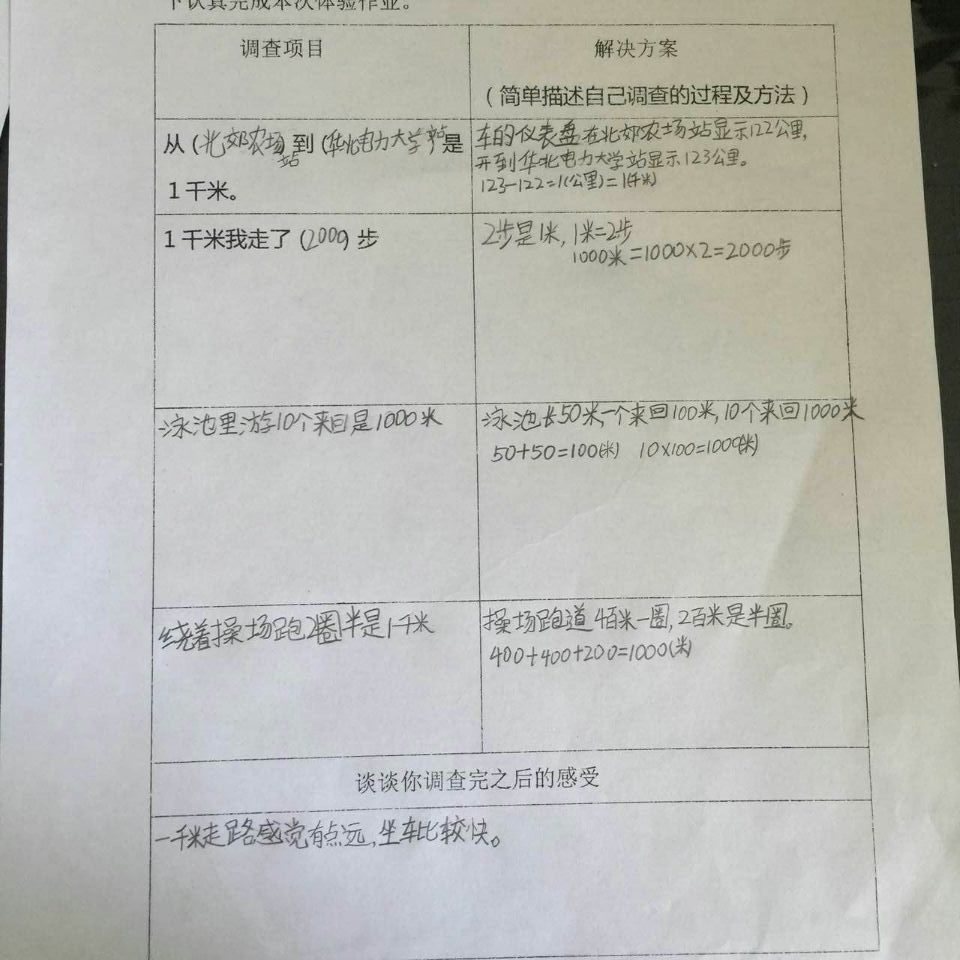 下认真完成本次体验作业。
调查项目
解决方案
（简单描述自己调查的过程及方法）
从（北郊农场站）到（华北电力大学站）是
1千米。
车的仪表盘在北郊农场站显示122公里,
开到华北电力大学站显示123公里。
123-122=1(公里)=1(千米)
1千米我走了（2000）步
2步是1米,1米=2步
1000米=1000×2=2000步
泳池里游10个来回是1000米
泳池长50米一个来回100米,10个来回1000米
50+50=100(米) 10×100=1000(米)
绕着操场跑2圈半是1千米
操场跑道4百米一圈,2百米是半圈。
400+400+200=1000(米)
谈谈你调查完之后的感受
一千米走路感觉有点远,坐车比较快。